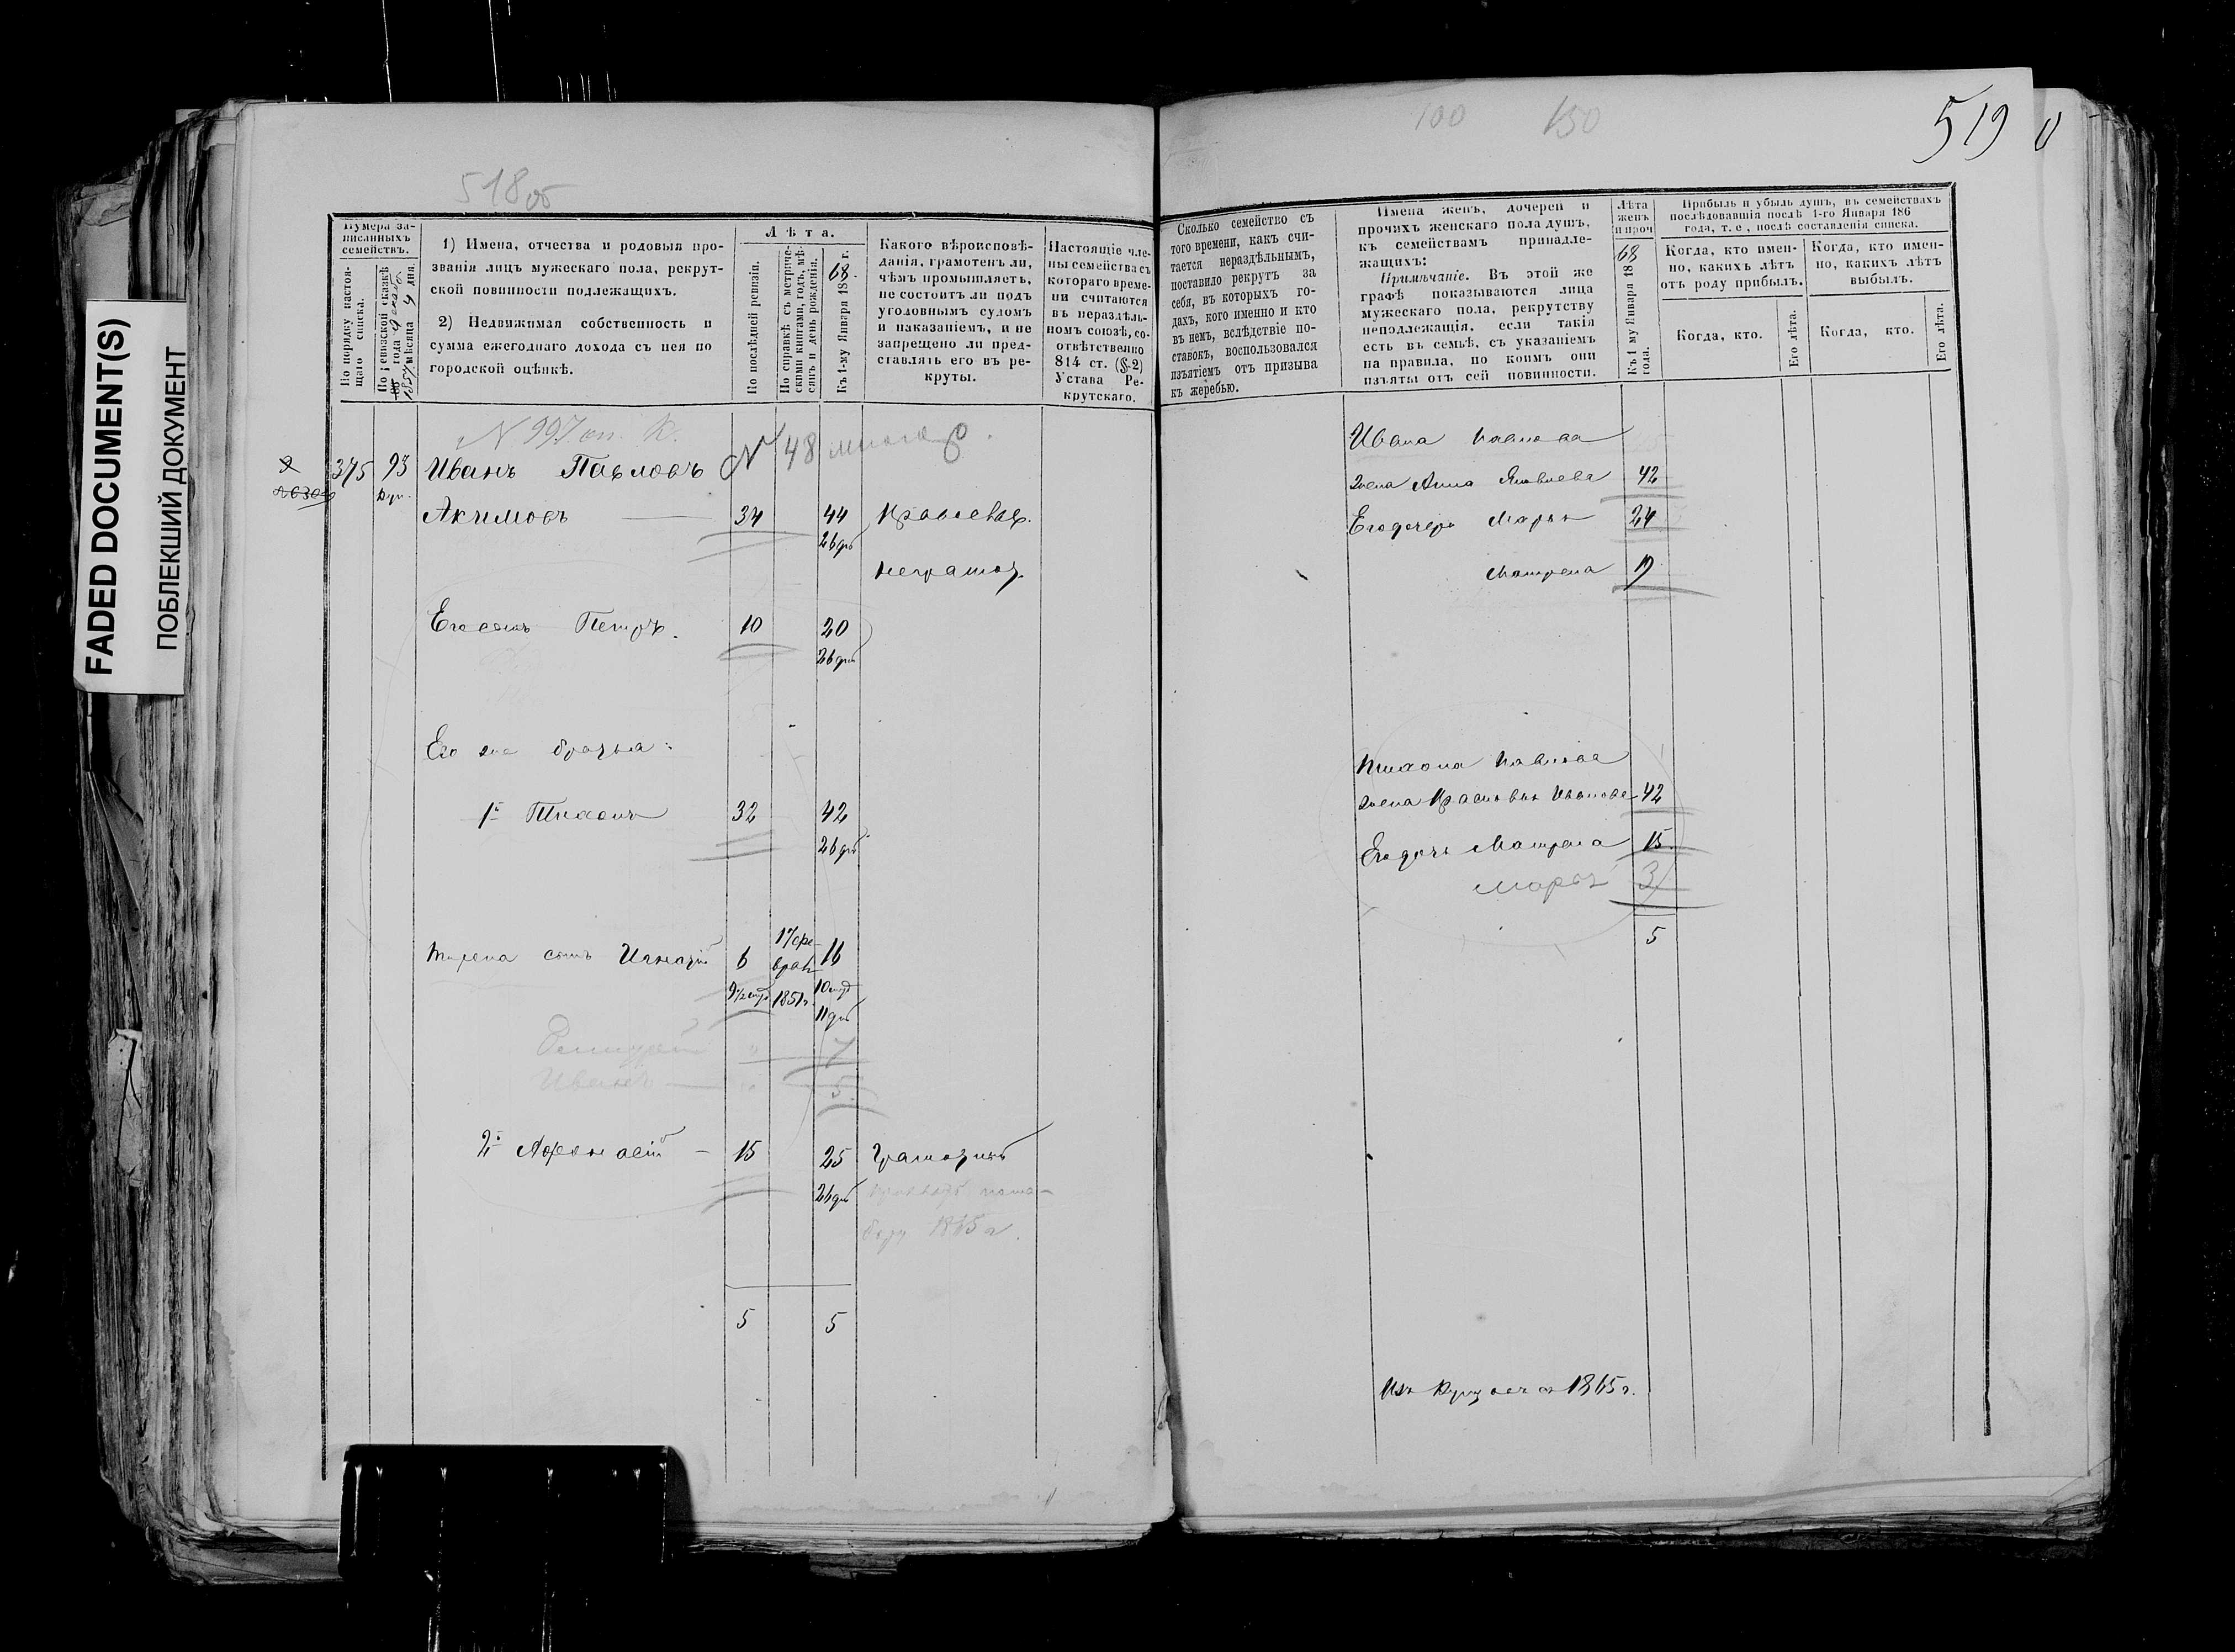 FADED DOCUMENT(S)
ПОБЛЕКШИЙ ДОКУМЕНТ
518об
Нумера за-
писанныхъ
семействъ.
По порядку настоя-
щаго списка.
По ревизской сказкѣ
1857 года мѣсяца 9 дня.
1) Имена, отчества и родовыя про-
званія лицъ мужескаго пола, рекрут-
ской повинности подлежащихъ.
2) Недвижимая собственность и
сумма ежегоднаго дохода съ нея по
городской оцѣнкѣ.
Лѣта.
По послѣдней ревизіи.
По справкѣ съ метриче-
скими книгами, годъ, мѣ-
сяцъ и день рожденія.
Къ 1-му Января 1868 г.
Какого вѣроисповѣ-
данія, грамотенъ ли,
чѣмъ промышляетъ,
не состоитъ ли подъ
уголовнымъ судомъ
и наказаніемъ, и не
запрещено ли пред-
ставлять его въ ре-
круты.
Настоящіе чле-
ны семейства съ
котораго време-
ни считаются
въ нераздѣль-
номъ союзѣ, со-
отвѣтственно
814 ст. (§ 2)
Устава Ре-
крутскаго.
N 997 оп. К.
N 48
375 93 Иванъ Павловъ
Акимовъ 34 44
26 дн
неграмот.
Его сынъ Петръ. 10 20
26 дн
Его же братья:
1й Тихонъ 32 42
26 дн
Тихона сынъ Игнатій 6 17 фе- 16
враля
9½ мѣс 1851 г. 10 мѣс
11 дн
7
Иванъ 5
2й Афанасій 15 25 Грамотенъ
26 дн
1865 г.
5 5
100 150
519
Сколько семейство съ
того времени, какъ счи-
тается нераздѣльнымъ,
поставило рекрутъ за
себя, въ которыхъ го-
дахъ, кого именно и кто
въ немъ, вслѣдствіе по-
ставокъ, воспользовался
изъятіемъ отъ призыва
къ жеребью.
Имена женъ, дочерей и
прочихъ женскаго пола душъ,
къ семействамъ принадле-
жащихъ:
Примѣчаніе. Въ этой же
графѣ показываются лица
мужескаго пола, рекрутству
неподлежащія, если такія
есть въ семьѣ, съ указаніемъ
на правила, по коимъ они
изъяты отъ сей повинности.
Лѣта
женъ
и проч
Къ 1 му Января 1868
года.
Прибыль и убыль душъ, въ семействахъ
послѣдовавшія послѣ 1-го Января 186
года, т. е., послѣ составленія списка.
Когда, кто имен-
но, какихъ лѣтъ
отъ роду прибылъ.
Когда, кто имен-
но, какихъ лѣтъ
выбылъ.
Когда, кто.
Его лѣта.
Когда, кто.
Его лѣта.
Ивана Павлова
жена Анна Яковлева 42
Его дочери Марья 24
Матрена 19
Тихона Павлова
жена Прасковья Иванова 42
Его дочь Матрена 15
Марья 3
5
Изъ 1865 г.